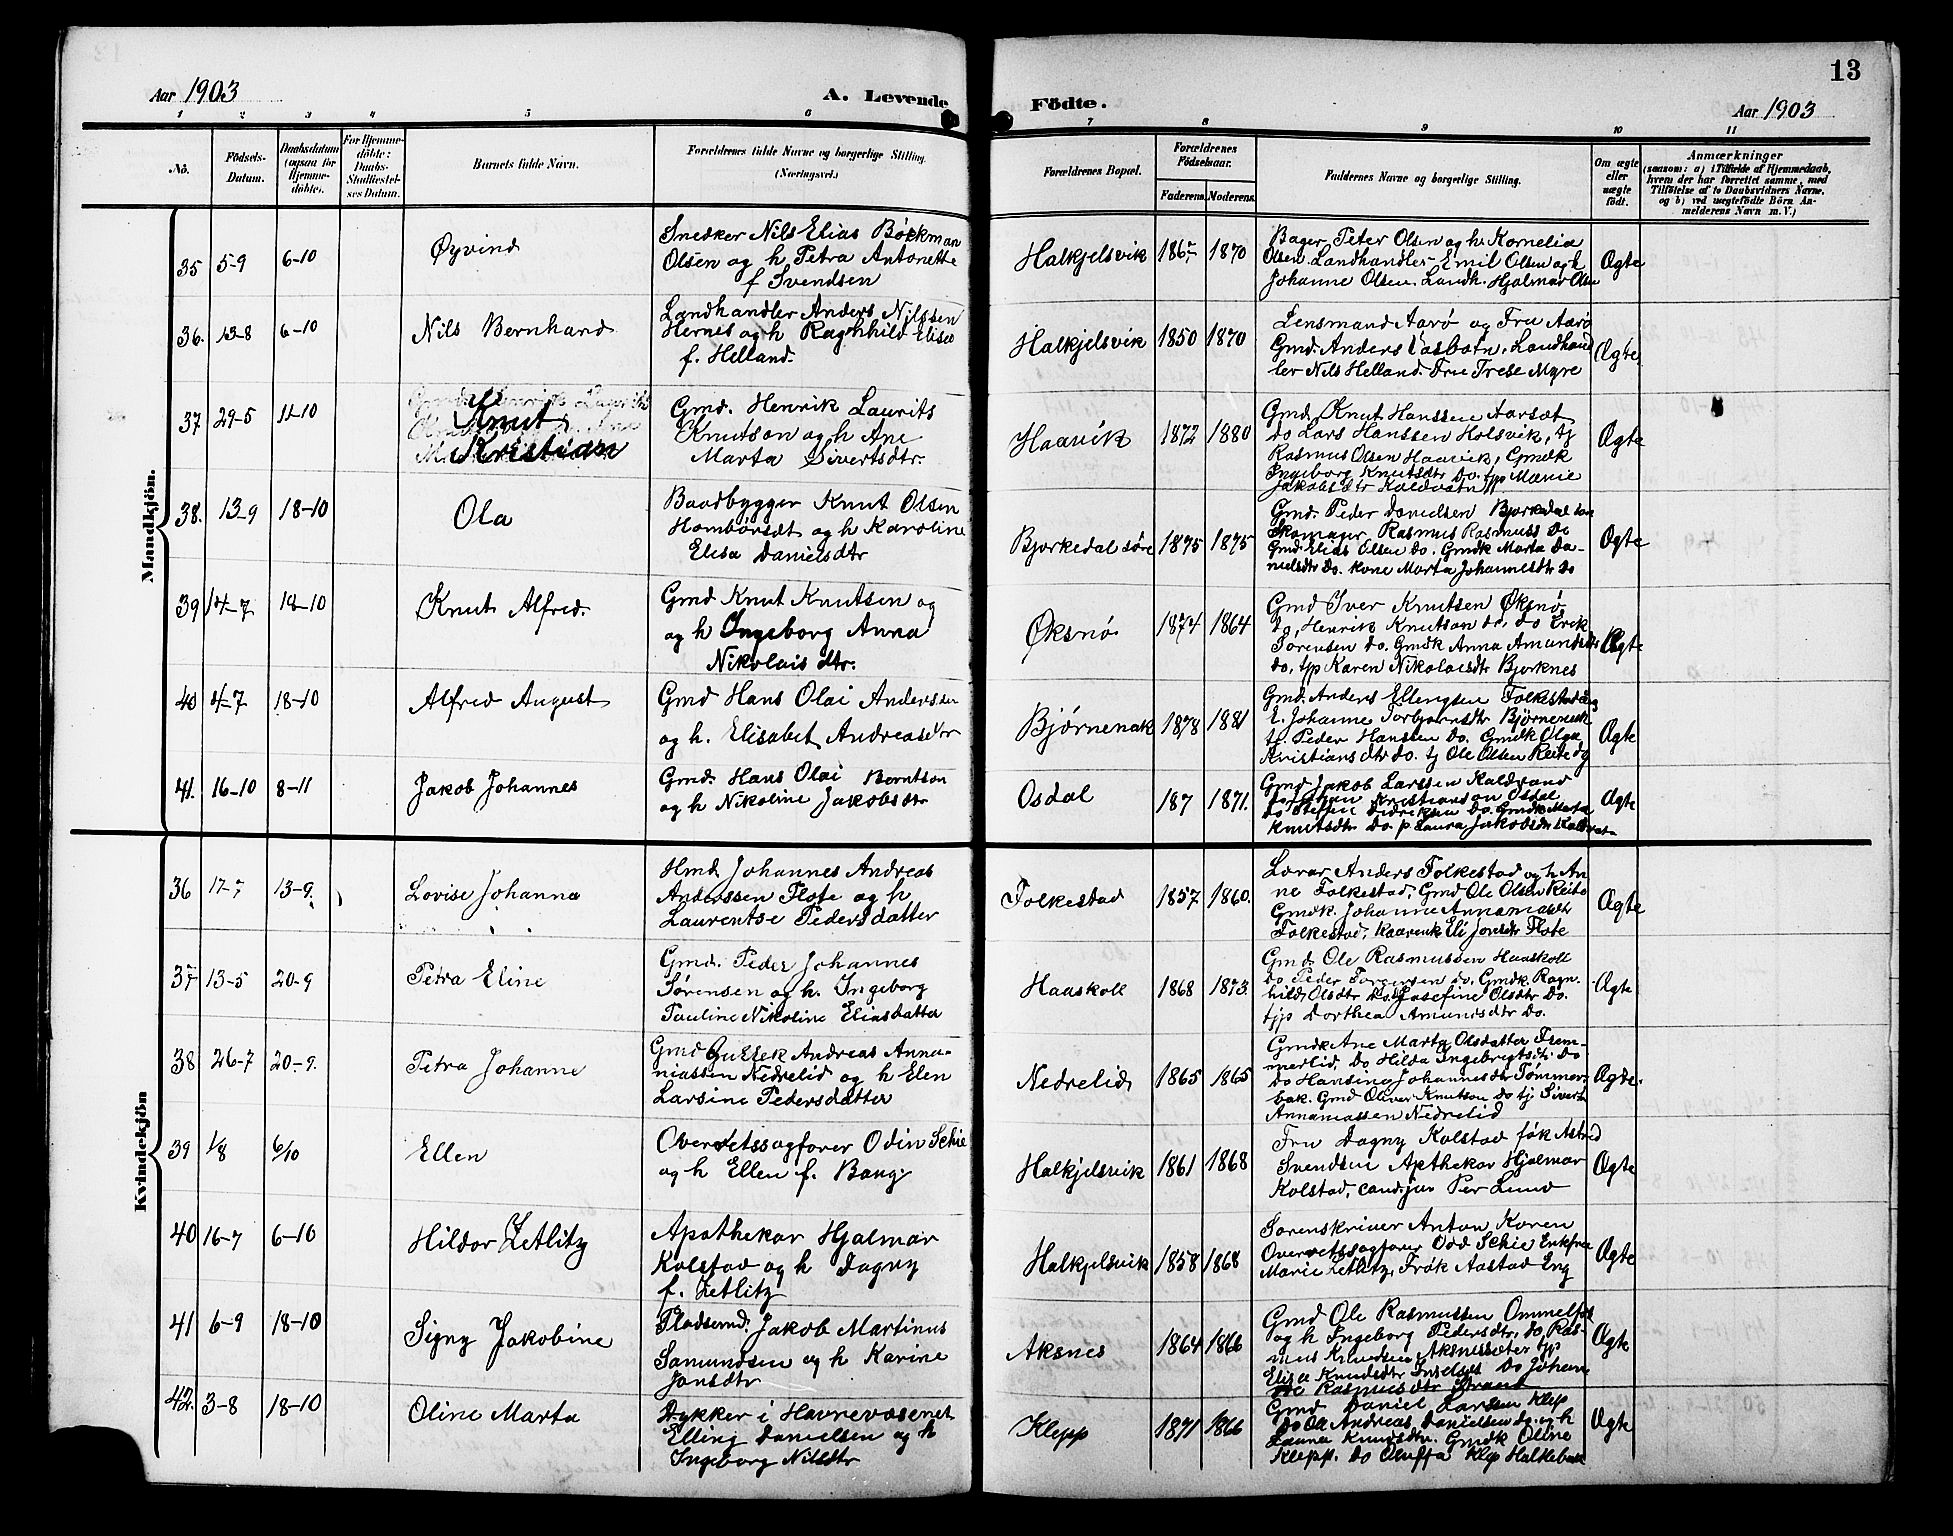 13
Aar 1903
A. Levende Födte.
Aar 1903
1 2 3 4 5 6 7 8 9 10 11
No.
Födsels-
Datum.
Daabsdatum
(ogsaa for
Hjemme-
döbte).
For Hjemme-
döbte:
Daabs-
Stadfæstel-
ses Datum.
Barnets fulde Navn.
Forældrenes fulde Navne og borgerlige Stilling.
(Næringsvei.)
Forældrenes Bopæl.
Forældrenes
Födselsaar.
Faderens. Moderens.
Faddernes Navne og borgerlige Stilling.
Om ægte
eller
uægte
födt.
Anmærkninger
(saasom: a) i Tilfælde af Hjemmedaab,
hvem der har forrettet samme, med
Tilföielse af to Daabsvidners Navne,
og b) ved uægtefödte Börn An-
melderens Navn m. V.)
Mandkjön.
35 5-9 6-10 Øyvind
Snedker Nils Elias Bøckman
Olsen og h Petra Antonette
f Svendsen
Halkjelsvik 1867 1870
Bager Peter Olsen og h Kornelia
Olsen. Landhandler Emil Olsen og h
Johanne Olsen. Landh. Hjalmar Olsen
Ægte
36. 13-8 6-10 Nils Bernhard
Landhandler Anders Nilssen
Hernes og h Ragnhild Elise
f. Helland.
Halkjelsvik 1850 1870
Lensmand Aarø og Fru Aarø
Gmd. Anders Vasbotn. Landhand
ler Nils Helland. Fru Trese Myre
Ægte
37 29-5 11-10 Knut
Kristian
Gmd. Henrik Laurits
Knutson og h Ane
Marta Sivertsdtr.
Haavik 1872 1880
Gmd. Knut Hanssen Aarsæt
do Lars Hanssen Holsvik, tj
Rasmus Olsen Haavik, Gmdk
Ingeborg Knutsdtr do. tjp Marie
Jakobsdtr Kaldvatn
Ægte
38. 13-9 18-10 Ola
Baadbygger Knut Olsen
Homborsdt og h Karoline
Elisa Danielsdtr
Bjørkedal søre 1875 1875
Gmd. Peder Danielsen Bjørkedal
Skomager Rasmus Rasmuss do
Gmd. Elias Olsen do. Gmdk Marta Da-
nielsdtr do. Kone Marta Johannesdtr do
Ægte
39 14-7 18-10 Knut Alfred.
Gmd Knut Knutsen og
og h Ingeborg Anna
Nikolais dtr.
Øksnø. 1874 1864
Gmd Iver Knutsen Øksnø,
do, Henrik Knutson do, do Erik
Sørensen do. Gmdk Anna Amundsdtr
do, tjp Karen Nikolaisdtr Bjørknes
Ægte
40 4-7 18-10 Alfred August
Gmd Hans Olai Anderssen
og h. Elisabet Andreasdtr
Bjørnenak 1878 1881
Gmd. Anders Ellingsen Folkestad
E. Johanne Torbjørnsdtr Bjørnenak
tj Peder Hanssen do. Gmdk Olga
Kristiansdtr do. tj Ole Olsen Reite
Ægte
41. 16-10 8-11 Jakob Johannes
Gmd. Hans Olai Berntson
og h Nikoline Jakobsdtr
Osdal 187 1871.
Gmd Jakob Larssen Kaldvatn
Kristianson Osdal
do Steffen Didriksen do. Gmdk Marta
Knutsdtr do. p Laura Jakobsdtr Kaldvatn
Ægte
Kvindekjön
36 17-7 13-9. Lovise Johanna
Hmd Johannes Andreas
Anderssen Flote og h
Laurentse Pedersdatter
Folkestad 1857 1860.
Lærar Anders Folkestad og h An
ne Folkestad, Gmd Ole Olsen Reite
Gmdk. Johanne Annaniasdtr
Folkestad, Kaarenk Eli Jonsdtr Flote
Ægte
37 13-5 20-9 Petra Eline
Gmd. Peder Johannes
Sørensen og h. Ingeborg
Pauline Nikoline Eliasdatter
Haaskoll 1868 1873.
Gmd. Ole Rasmussen Haaskoll
do Peder Torgersen do. Gmdk Ragn-
hild Olsdtr do. Josefine Olsdtr do.
tjp Dorthea Amundsdtr do.
Ægte
38 26-7 20-9. Petra Johanne
Gmd Gullek Andreas Anna-
niassen Nedrelid og h Elen
Larsine Pedersdatter
Nedrelid 1865 1865
Gmdk Ane Marta Olsdatter Frem-
merlid, do Hilda Ingebrigtsdtr do
do Hansina Johannesdtr Tømmer-
bak. Gmd Oliver Knutson do tj Sivert
Annaniassen Nedrelid
Ægte.
39 1/8 6/10 Ellen
Overretssagfører Odin Schie
og h Ellen f. Bang.
Halkjelsvik 1861 1868
Fru Dagny Kolstad frk Astrid
Svendsen Apotheker Hjalmar
Kolstad, cand. jur Per Lund
Ægte
40 16-7 6-10 Hildor Zetlitz
Apotheker Hjalmar
Kolstad og h Dagny
f. Zetlitz
Halkjelsvik 1858 1868
Sorenskriver Anton Koren
Overretssagfører Odd Schie Enkfru
Marie Zetlitz, Frøk Aastad Eng
Ægte
41 6-9 18-10 Signy Jakobine
Pladsemd. Jakob Martinus
Samundsen og h Karine
Jonsdtr
Aksnes 1864 1866
Gmd Ole Rasmussen Ommelfos
og h Ingeborg Pedersdtr, do Ras-
mus Knudsen Aksnessæter tjp
Elisa Knudsdtr do Johan
ne Rasmusdtr Strand
Ægte
42. 3-8 18-10 Oline Marta
Dykker i Havnevæsenet
Elling Danielsen og h
Ingeborg Nilsdtr
Klepp 1871 1866
Gmd Daniel Larsen Klep
do Ole Andreas Danielsen do. og h
Laura Knudsdtr. Gmdk Oline
Klepp. do Oluffa Klep
Ægte